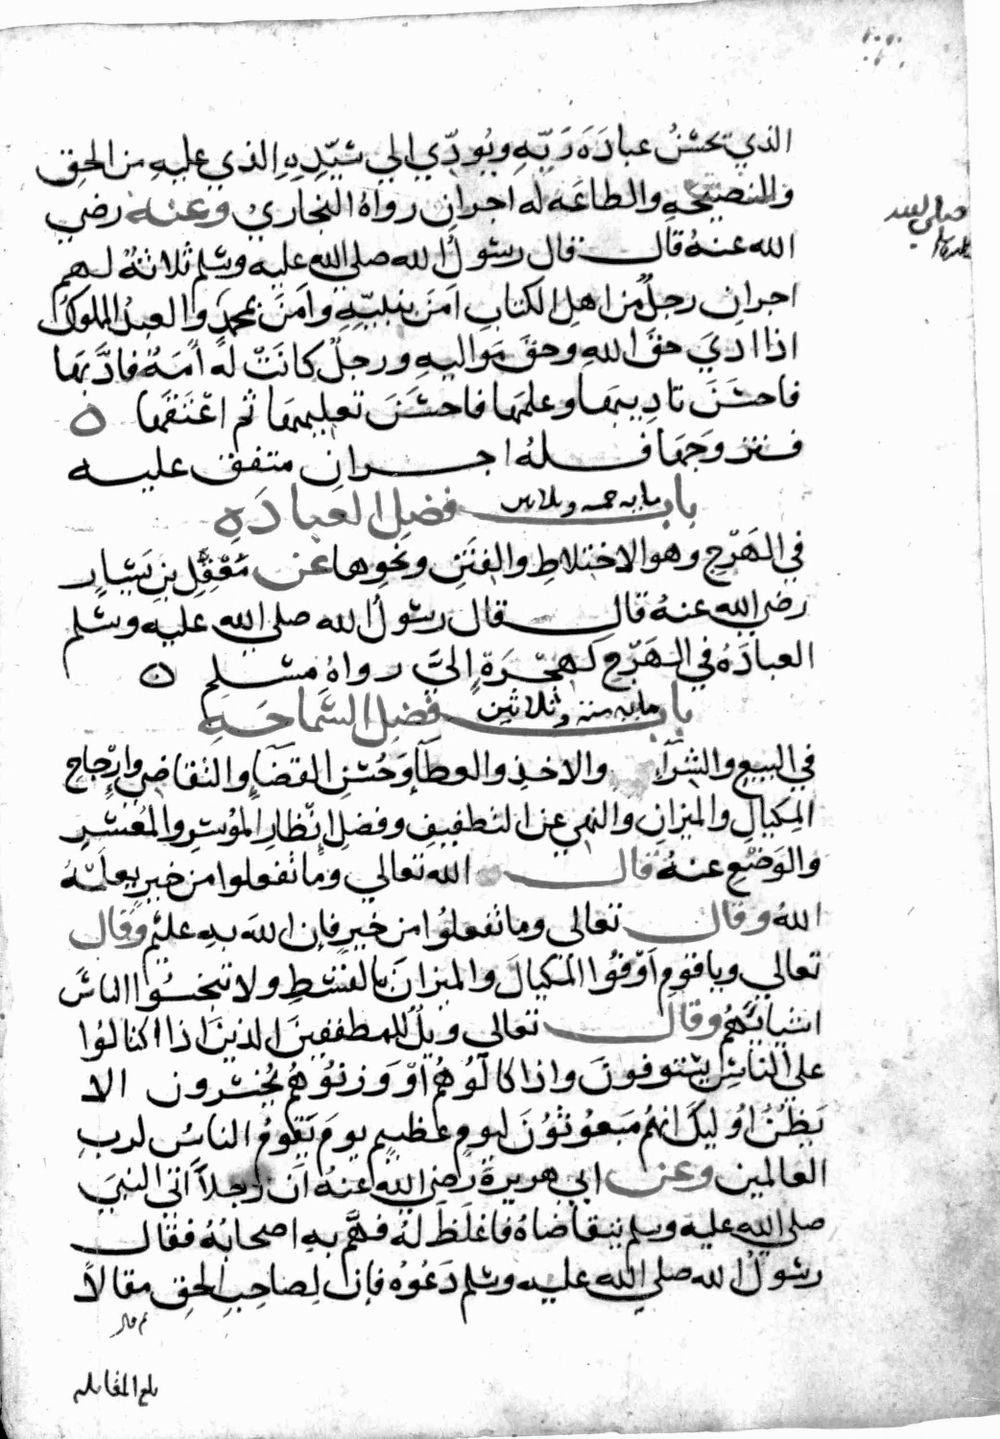 الذي يحسن عبادة ربه ويودي الي سيده الذي عليه من الحق
والنصيحه والطاعه له اجران رواه البخاري وعنه رضي
الله عنه قال قال رسول الله صلي الله عليه وسلم ثلاثة لهم
اجران رجل من اهل الكتاب امن بنبيه وامن بمحمد والعبد المملوك
صلي الله عليه وسلم
اذا ادي حق الله وحق مواليه ورجل كانت له امة فادبها
فاحسن تاديبها وعلمها فاحسن تعليمها ثم اعتقها ه
فتزوجها فله اجران متفق عليه
باب مايه خمسه وثلاثين فضل العباده
في الهرج وهو الاختلاط والفتن ونحوها عن معقل بن يسار
رضي الله عنه قال قال رسول الله صلي الله عليه وسلم
العباده في الهرج كهجرة الي رواه مسلم ه
باب مايه ستة وثلاثين فضل السماحه
في البيع والشرآ والاخذ والعطآ وحسن القضآ والتقاضي وارجاح
المكيال والميزان والنهي عن التطفيف وفضل انظار الموسر والمعسر
والوضع عنه قال الله تعالي وما تفعلوا من خير يعلمه
الله وقال تعالي وما تفعلوا من خير فان الله به عليم وقال
تعالي وياقوم اوفوا المكيال والميزان بالقسط ولا تبخسوا الناس
اشياءهم وقال تعالي ويل للمطففين الذين اذا اكتالوا
علي الناس يستوفون واذا كالوهم او وزنوهم يخسرون الا
يظن اوليك انهم مبعوثون ليوم عظيم يوم يقوم الناس لرب
العالمين وعن ابي هريرة رضي الله عنه ان رجلا اتي النبي
صلي الله عليه وسلم يتقاضاه فاغلظ له فهم به اصحابه فقال
رسول الله صلي الله عليه وسلم دعوه فان لصاحب الحق مقالا
ثم قال
بلغ المقابله